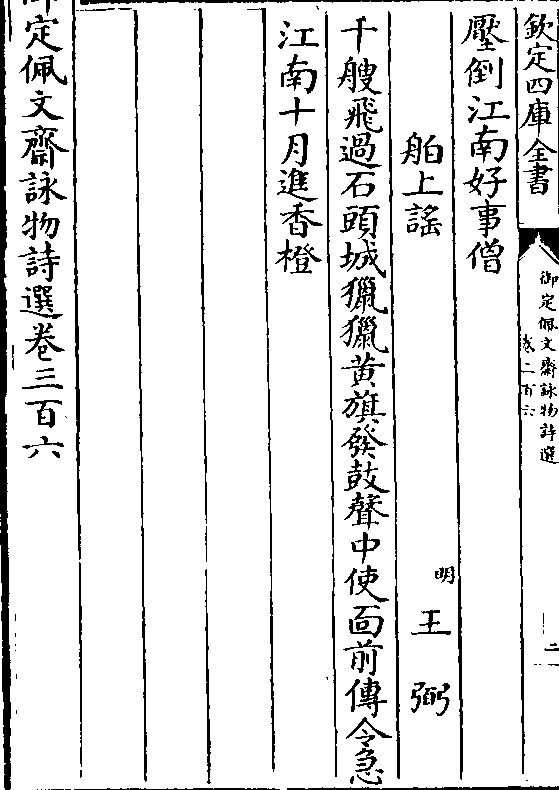 欽定四庫全書
御定佩文齋詠物詩選
卷三百六
二
壓倒江南好事僧
舶上謠
明 王弼
千艘飛過石頭城獵獵黄旗發鼓聲中使面前傳令急
江南十月進香橙
御定佩文齋詠物詩選卷三百六